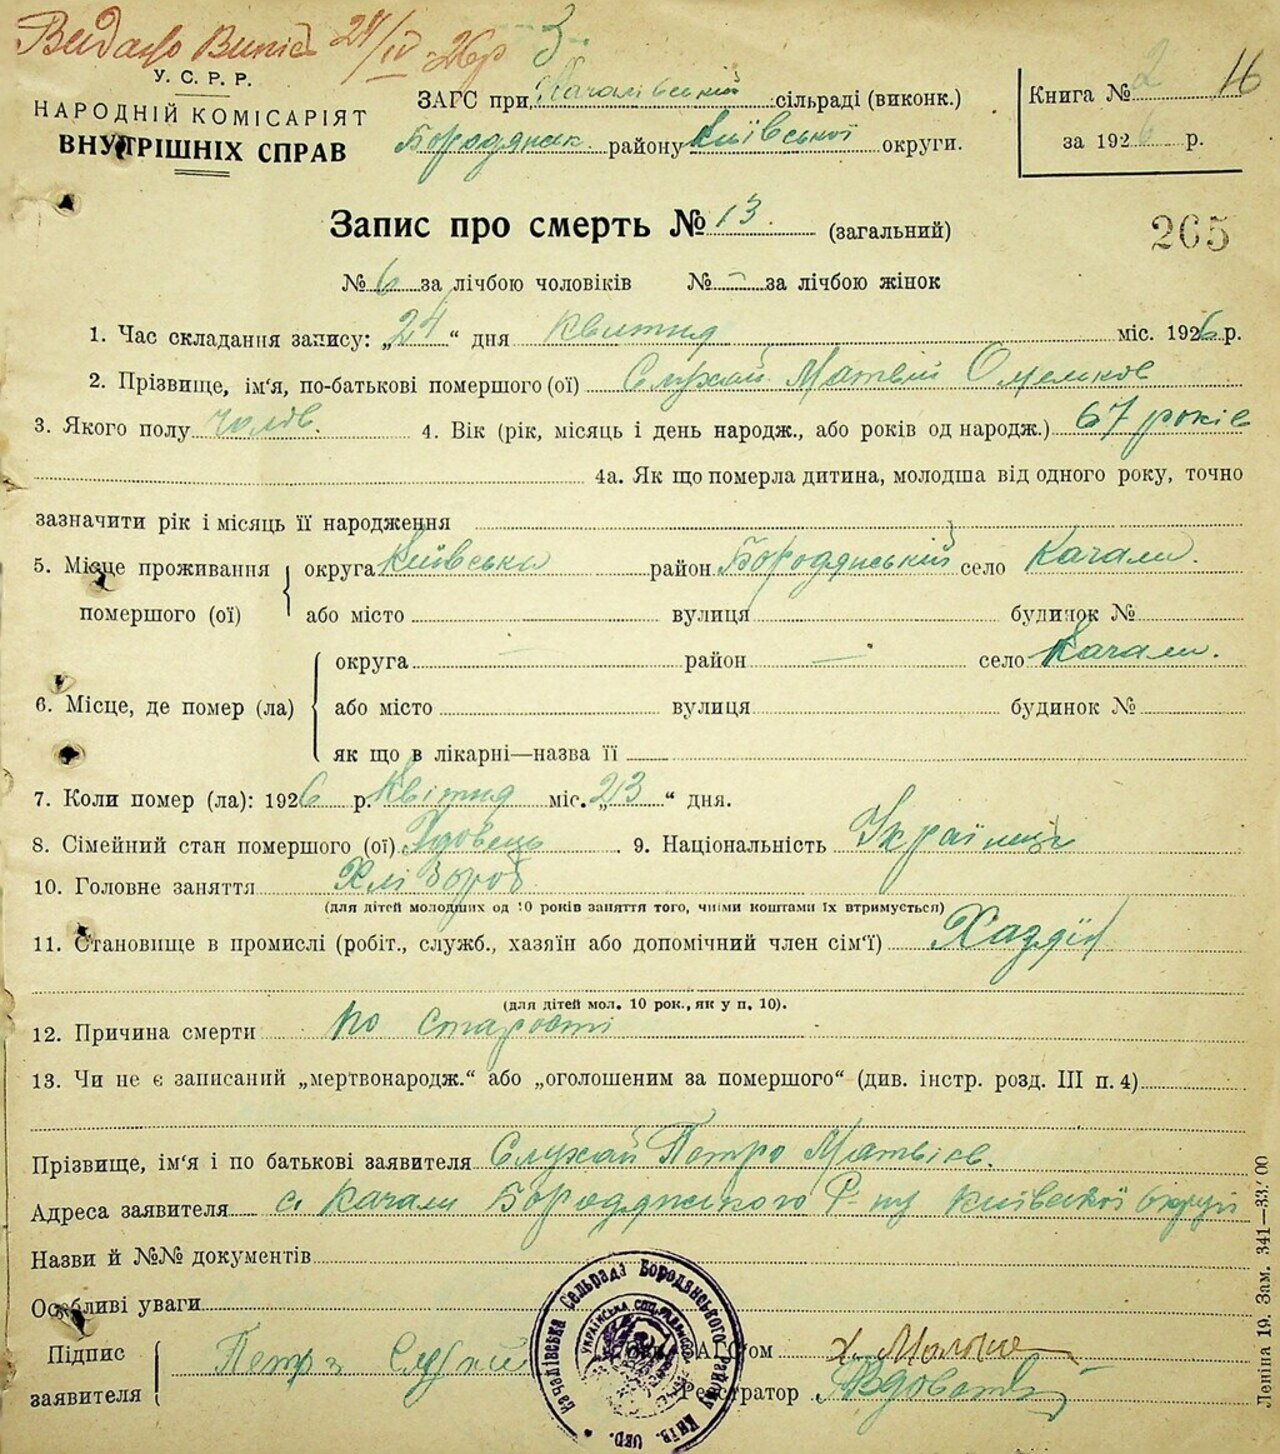 Видано Випис 24/IV-26р 3
У. С. Р. Р.
НАРОДНІЙ КОМІСАРІЯТ
ВНУТРІШНІХ СПРАВ
ЗАГС при Качалівській сільраді (виконк.)
Бородянськ. району Київської округи.
Книга № 2 16
за 1926 р.
Запис про смерть № 13. (загальний)
265
№ 6 за лічбою чоловіків № – за лічбою жінок
1. Час складання запису: „24“ дня Квітня міс. 1926 р.
2. Прізвище, ім'я, по-батькові помершого (ої) Слухай Матвій Омельков
3. Якого полу чолов. 4. Вік (рік, місяць і день народж., або років од народж.) 67 років
4а. Як що померла дитина, молодша від одного року, точно
зазначити рік і місяць її народження
5. Місце проживання округа Київська район Бородянський село Качали.
помершого (ої) або місто вулиця будинок №
округа — район — село Качали.
6. Місце, де помер (ла) або місто вулиця будинок №
як що в лікарні—назва її
7. Коли помер (ла): 1926 р. Квітня міс. „23“ дня.
8. Сімейний стан помершого (ої) Удовець. 9. Національність Українець
10. Головне заняття Хлібороб
(для дітей молодших од 10 років заняття того, чиїми коштами їх втримується)
11. Становище в промислі (робіт., служб., хазяїн або допомічний член сім'ї) Хазяїн
(для дітей мол. 10 рок., як у п. 10).
12. Причина смерти по старости
13. Чи не є записаний „мертвонародж.“ або „оголошеним за помершого“ (див. інстр. розд. III п. 4)
Прізвище, ім'я і по батькові заявителя Слухай Петро Матвієв.
Адреса заявителя с. Качали Бородянського Р-ну Київської округи
Назви й №№ документів
Особливі уваги
Підпис
заявителя Петро Слухай
АГС'ом
Реєстратор
Качалівська Сельрада Бородянського району Київ. окр.
УКРАЇНСЬКА СОЦ. РАДЯНСЬК.
Леніна 19. Зам. 341—33.000